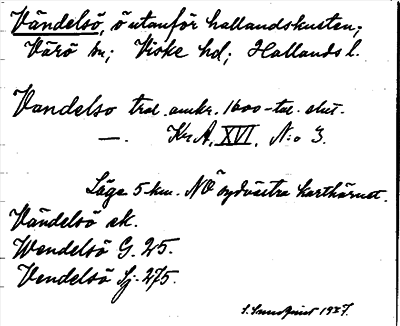 Vändelsö, ö utanför hallandskusten;
Värö sn; Viske hd; Hallands l.
Vandelso trol. omkr. 1600-tal. slut.
—. Kr. A. XVI. N:o 3.
Läge 5 km. NO sydvästra karthörnet.
Vändelsö ek.
Wendelsö G. 25.
Vendelsö Sj. 275.
1927.